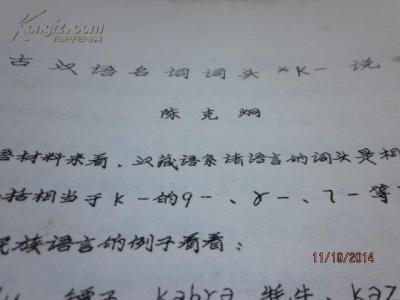 Kongfz.com
孔夫子旧书网
古汉语名词词头*K-说
陈克炯
语材料来看，汉藏语系诸语言的词头是相
括相当于K-的q-、ɣ-、ʔ-等
民族语言的例子看看：
锤子、kabra 牦牛、kaz
11/19/2014